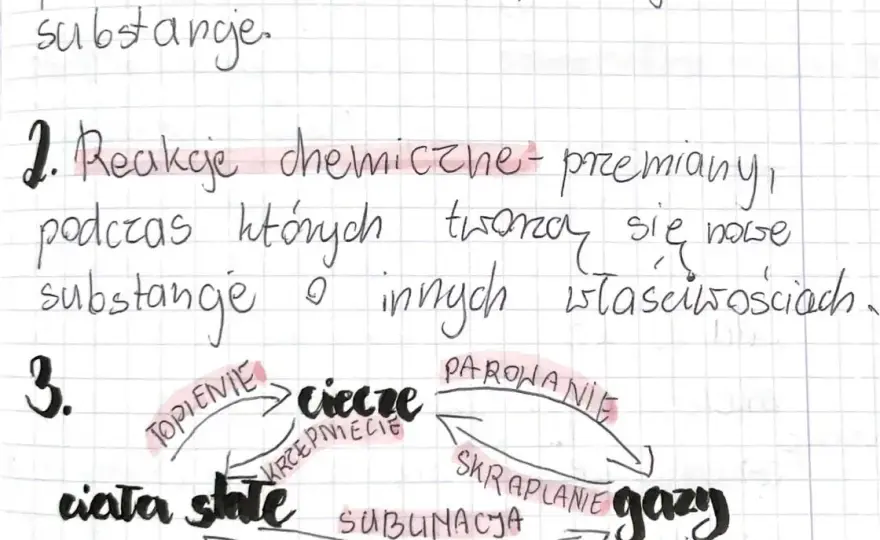 substancje.
2. Reakcje chemiczne - przemiany,
podczas których tworzą się nowe
substancje o innych właściwościach.
3.
TOPIENIE
ciecze
PAROWANIE
KRZEPNIĘCIE
SKRAPLANIE
ciała stałe
gazy
SUBLIMACJA